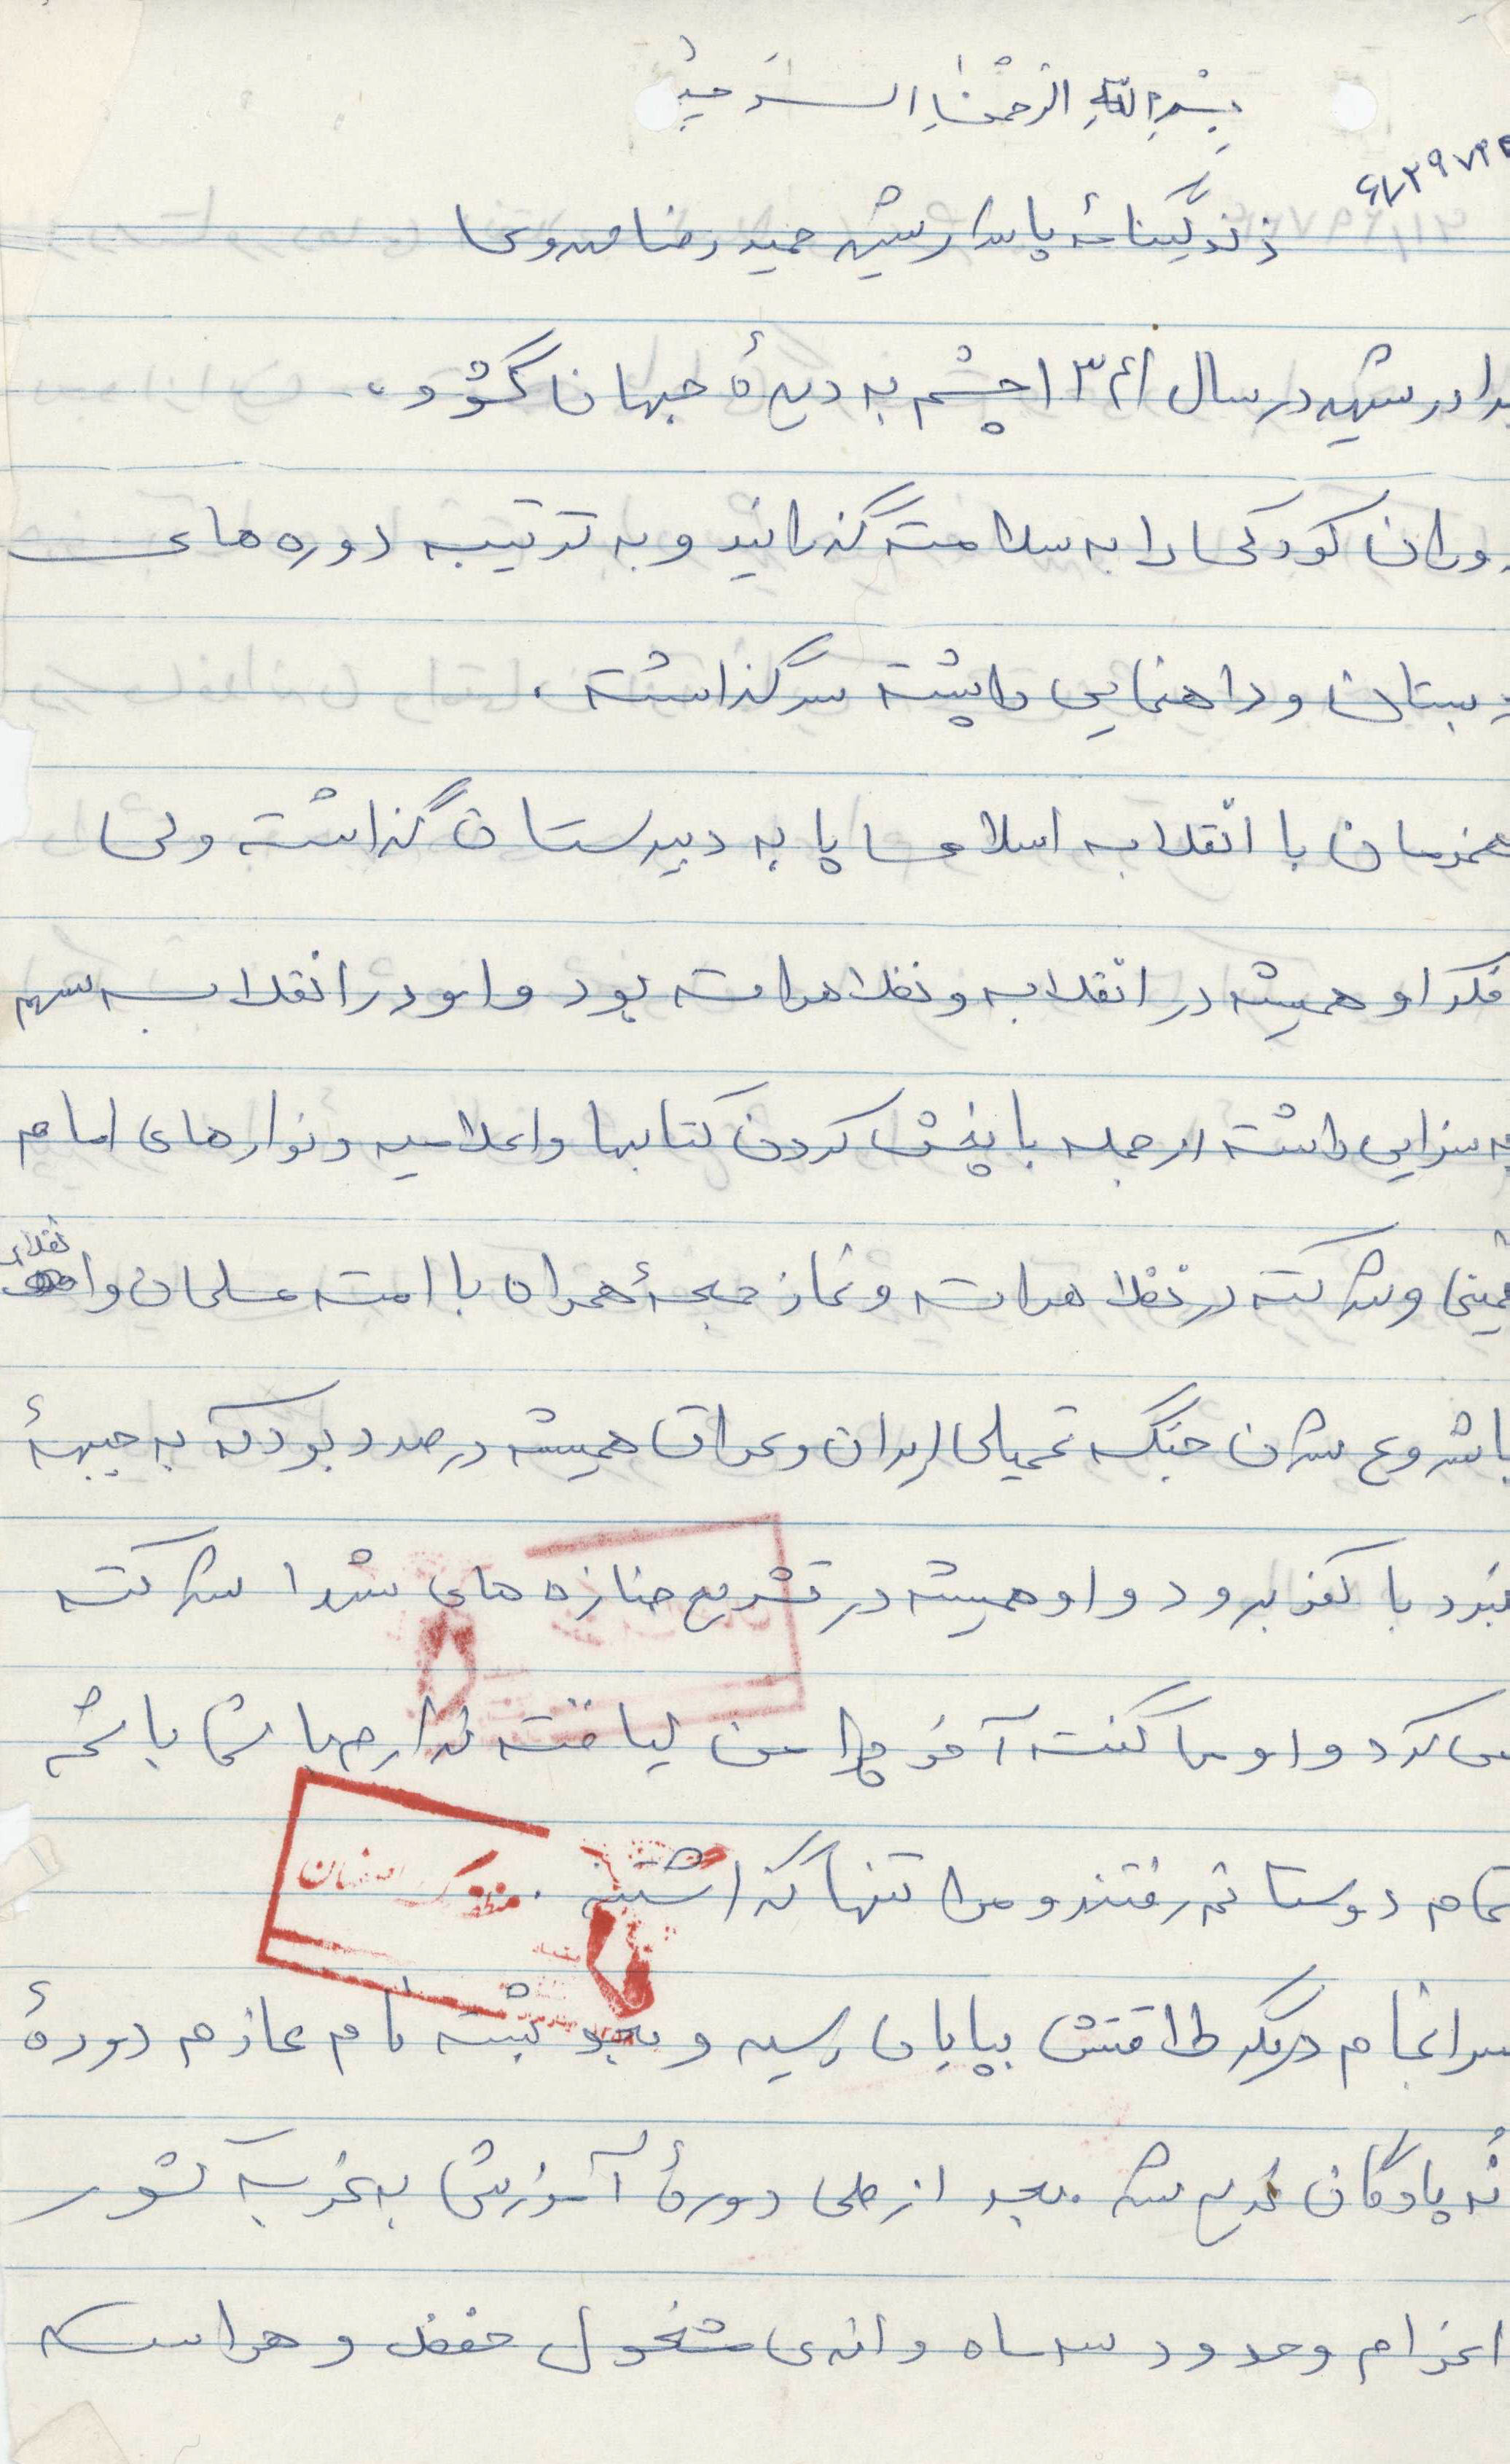 بِسْمِ اللهِ الرَّحْمٰنِ الرَّحِیْمِ
زندگینامۀ پاسدار شهید حمید رضا مهدوی
برادر شهید در سال ۱۳۴۱ چشم به دیدۀ جهان گشود،
دوران کودکی را به سلامت گذرانید و به ترتیب دوره های
دبستان و راهنمایی را پشت سر گذاشت.
همزمان با انقلاب اسلامی پا به دبیرستان گذاشت ولی
فکر او همیشه در انقلاب و تظاهرات بود و او در انقلاب سهم
به سزایی داشت از جمله با پخش کردن کتابها و اعلامیه و نوارهای امام
خمینی و شرکت در تظاهرات و نماز جمعۀ همراه با امت مسلمان و انقلابی
با شروع شدن جنگ تحمیلی ایران و عراق همیشه در صدد بود که به جبهۀ
نبرد با کفر برود و او همیشه در تشریع جنازه های شهدا شرکت
می کرد و او می گفت آخر چرا من لیاقت ندارم با شما باشم
تمام دوستانم رفتند و مرا تنها گذاشتند.
سرانجام دیگر طاقتش بپایان رسید و بعد ثبت نام عازم دورۀ
پادگان شد. بعد از طی دورۀ آموزشی به غرب کشور
اعزام و حدود سه ماه و اندی مشغول حفظ و حراست